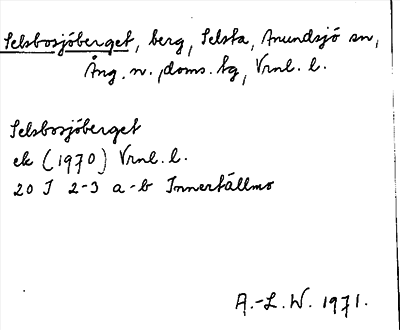 Selsbosjöberget, berg, Selsta, Anundsjö sn,
Ång. n. doms. tg, Vrnl. l.
Selsbosjöberget
ek (1970) Vrnl. l.
20 J 2-3 a-b Innertällmo
A.-L. W. 1971.